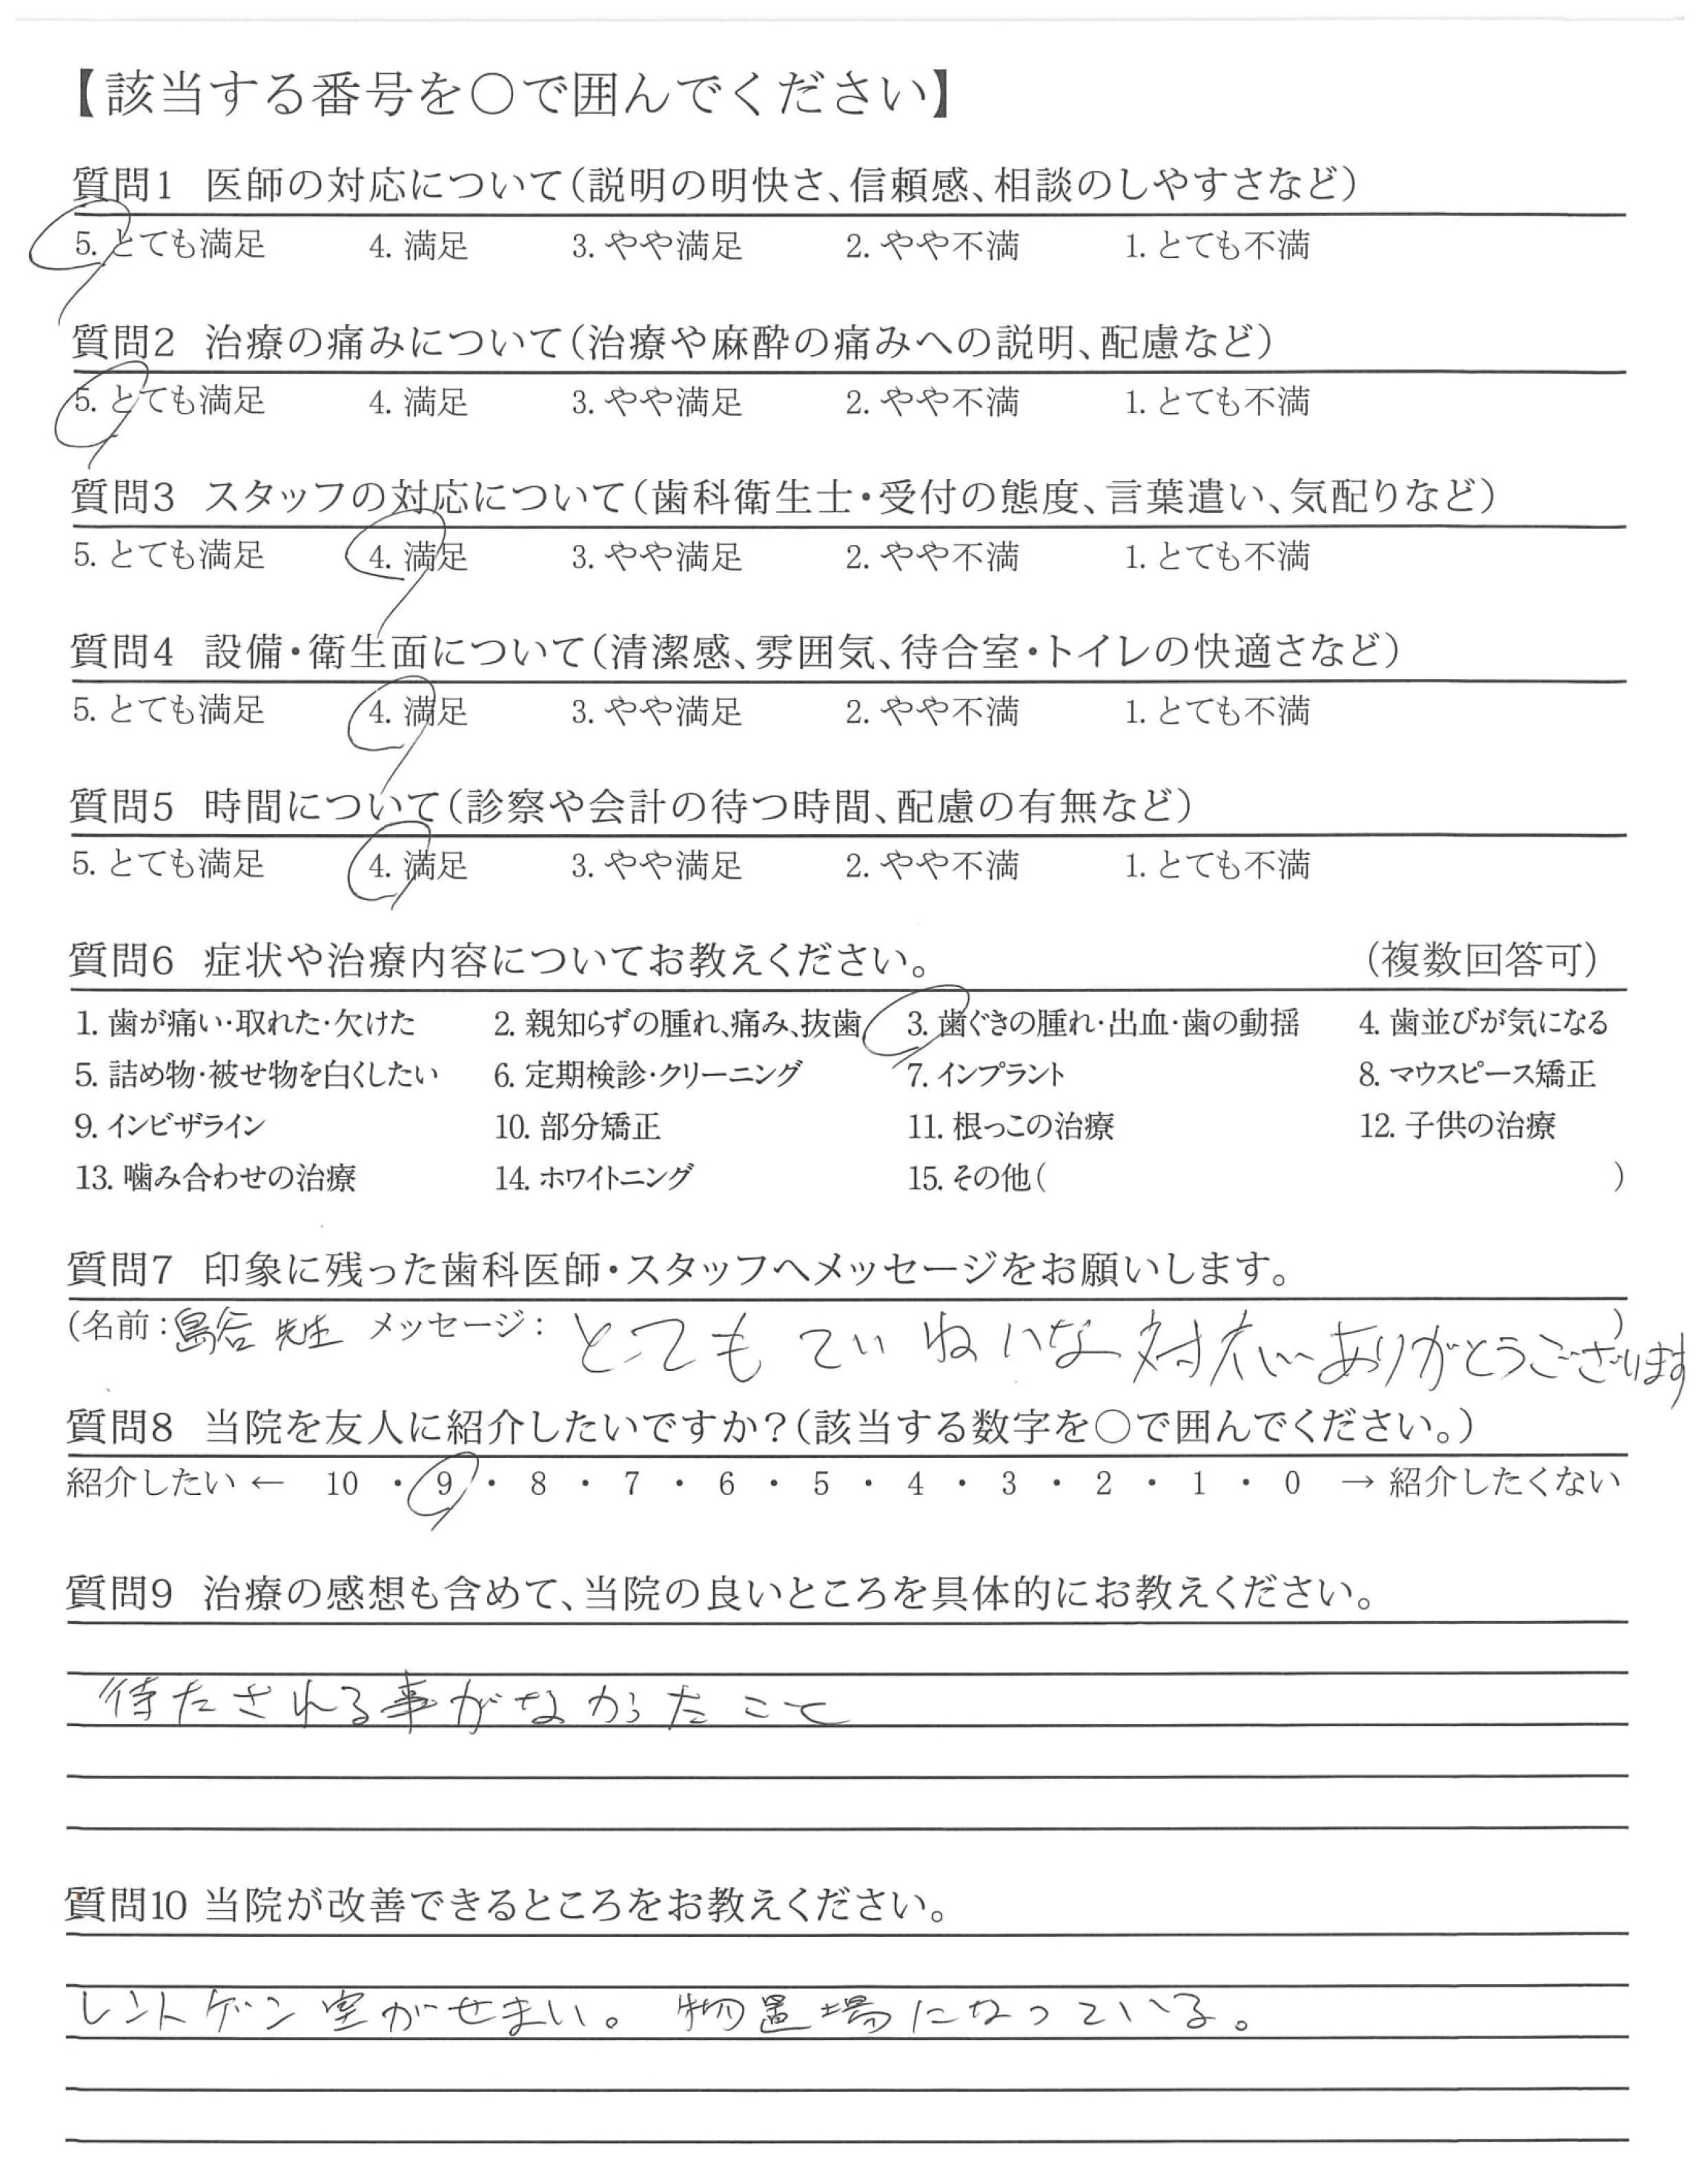 【該当する番号を○で囲んでください】
質問1 医師の対応について(説明の明快さ、信頼感、相談のしやすさなど)
5. とても満足 4. 満足 3. やや満足 2. やや不満 1. とても不満
質問2 治療の痛みについて(治療や麻酔の痛みへの説明、配慮など)
5. とても満足 4. 満足 3. やや満足 2. やや不満 1. とても不満
質問3 スタッフの対応について(歯科衛生士・受付の態度、言葉遣い、気配りなど)
5. とても満足 4. 満足 3. やや満足 2. やや不満 1. とても不満
質問4 設備・衛生面について(清潔感、雰囲気、待合室・トイレの快適さなど)
5. とても満足 4. 満足 3. やや満足 2. やや不満 1. とても不満
質問5 時間について(診察や会計の待つ時間、配慮の有無など)
5. とても満足 4. 満足 3. やや満足 2. やや不満 1. とても不満
質問6 症状や治療内容についてお教えください。 (複数回答可)
1. 歯が痛い・取れた・欠けた 2. 親知らずの腫れ、痛み、抜歯 3. 歯ぐきの腫れ・出血・歯の動揺 4. 歯並びが気になる
5. 詰め物・被せ物を白くしたい 6. 定期検診・クリーニング 7. インプラント 8. マウスピース矯正
9. インビザライン 10. 部分矯正 11. 根っこの治療 12. 子供の治療
13. 噛み合わせの治療 14. ホワイトニング 15. その他( )
質問7 印象に残った歯科医師・スタッフへメッセージをお願いします。
(名前:島谷 先生 メッセージ: とても ていねいな 対応ありがとうございます)
質問8 当院を友人に紹介したいですか?(該当する数字を○で囲んでください。)
紹介したい ← 10 ・ 9 ・ 8 ・ 7 ・ 6 ・ 5 ・ 4 ・ 3 ・ 2 ・ 1 ・ 0 → 紹介したくない
質問9 治療の感想も含めて、当院の良いところを具体的にお教えください。
待たされる事がなかったこと
質問10 当院が改善できるところをお教えください。
レントゲン室がせまい。物置場になっている。